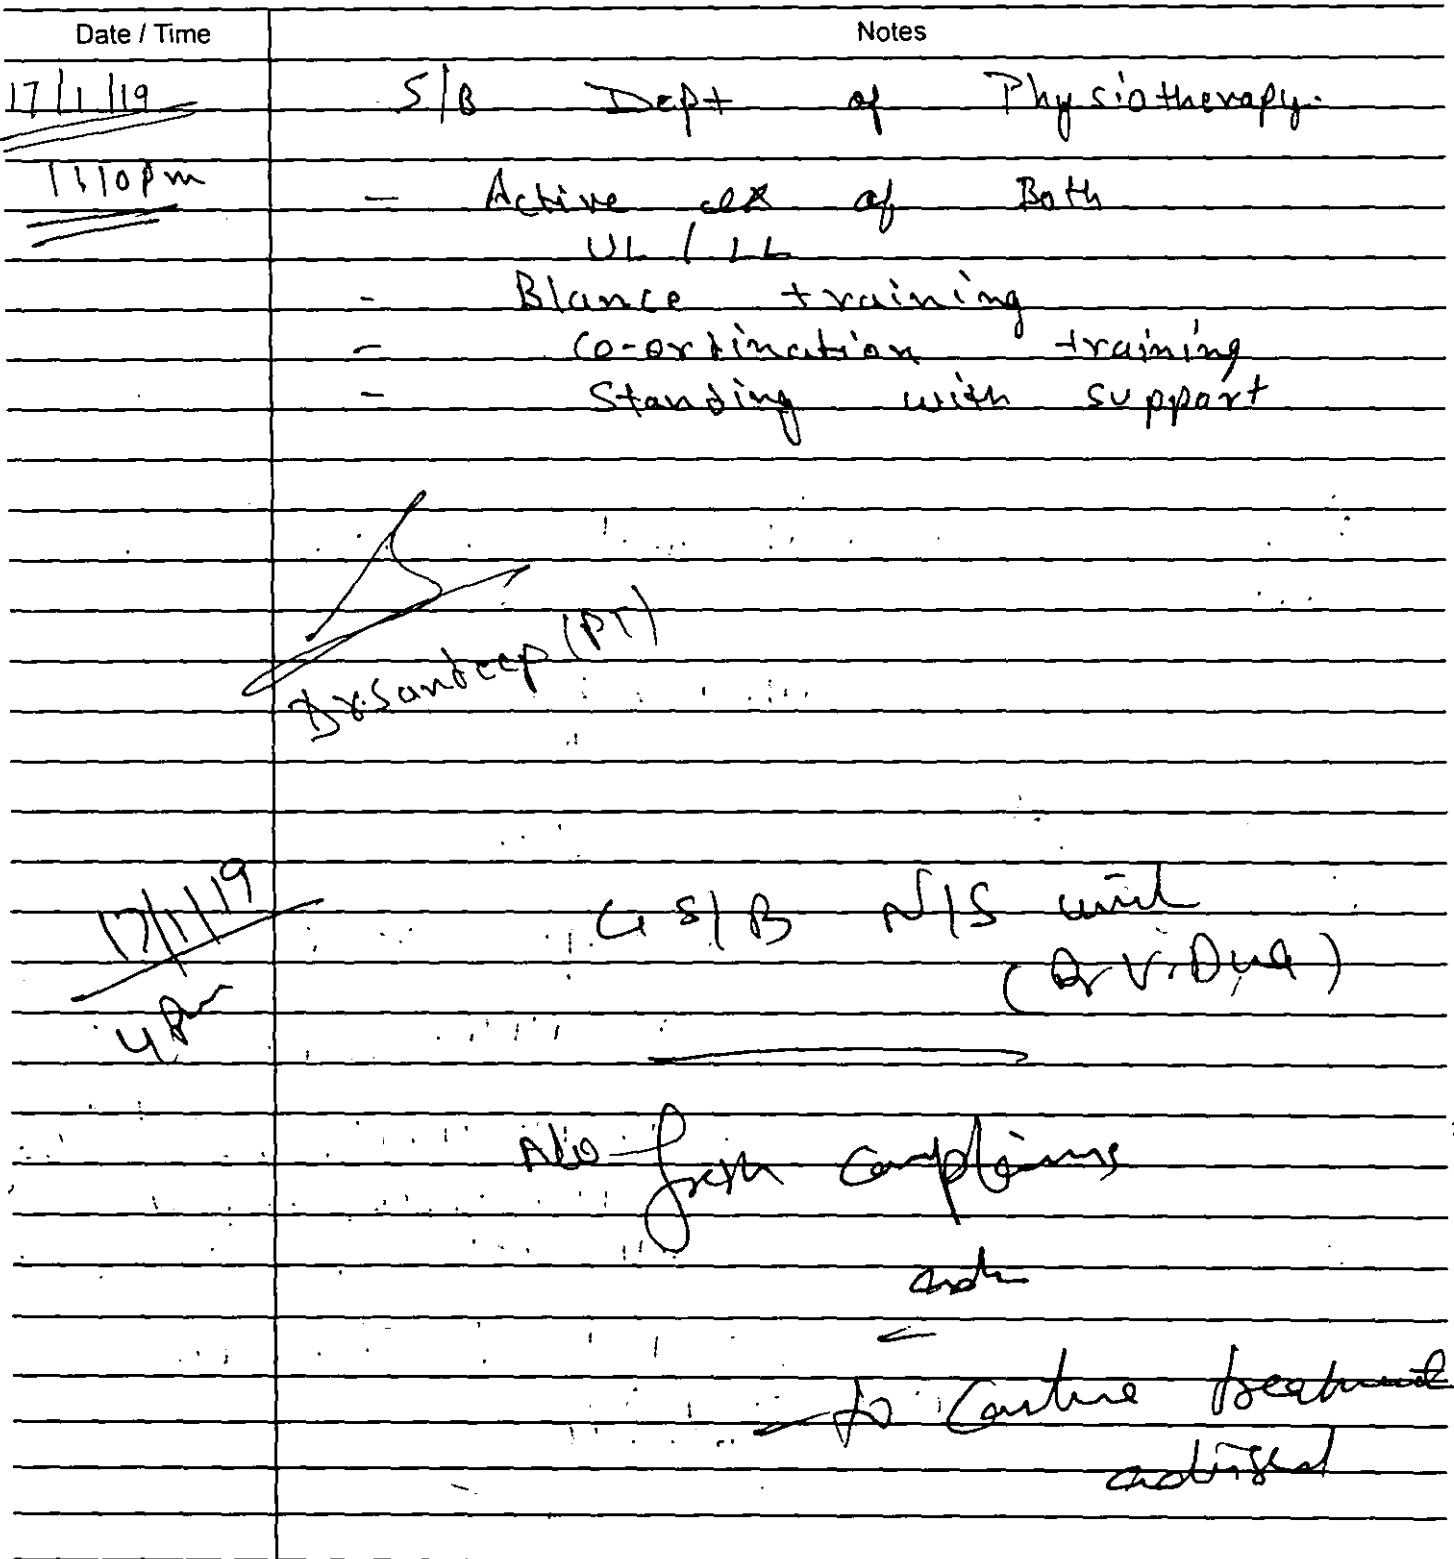 Date / Time Notes
17/1/19 S/B Dept of Physiotherapy.
1:10pm - Active ex of Both
UL / LL
- Blance training
- Co-ordination training
- Standing with support
Dr. Sandeep (PT)
17/1/19 S/B N/S unit
(Dr V. Dua)
4 pm
fresh complains
- to continue treatment
advised